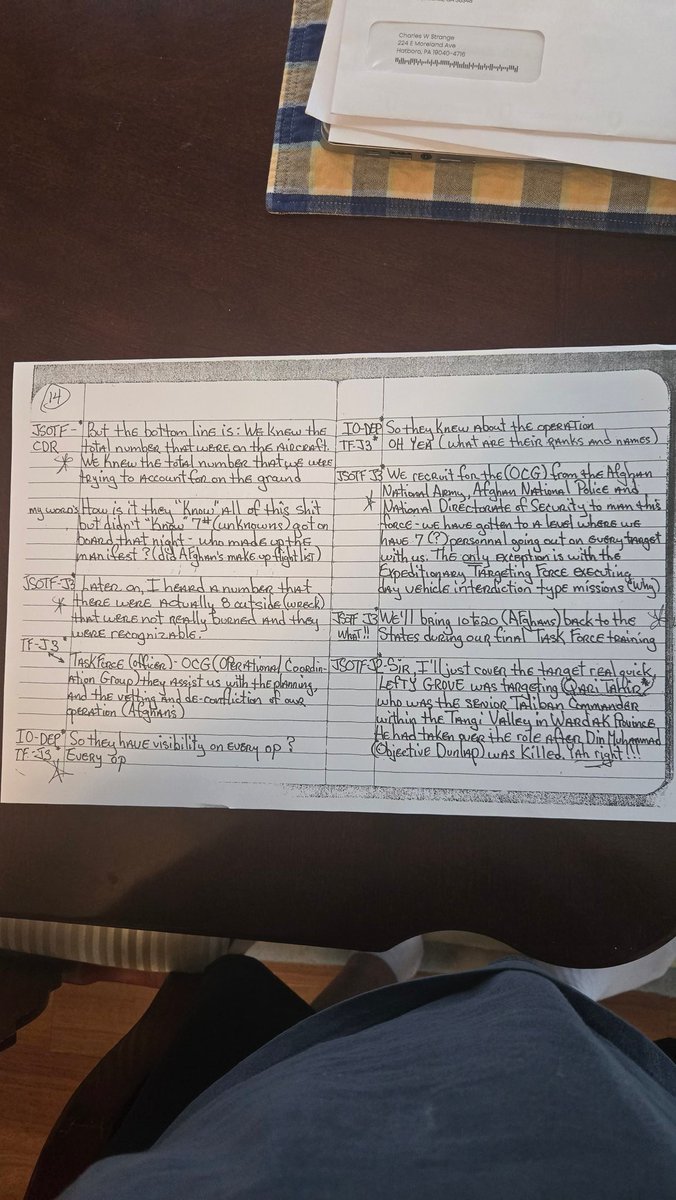 Charles W Strange
224 E Moreland Ave
Hatboro, PA 19040-4716
14
JSOTF-* But the bottom line is: We knew the
CDR total number that were on the aircraft.
We knew the total number that we were
trying to account for on the ground
my words How is it they "Know" All of this shit
but didn't "know" 7* (unknowns) got on
board that night - who made up the
manifest? (did Afghan's make up flight list)
JSOTF-J3* Later on, I heard a number that
there were actually 8 outside (wreck)
that were not really burned and they
were recognizable.
TF-J3*
Task Force (officer) - OCG (Operational Coordin-
ation Group) they assist us with the planning,
and the vetting and de-confliction of our
operation (Afghans)
IO-DEP* So they have visibility on every op?
TF-J3* Every op
IO-DEP* So they knew about the operation
TF J3* OH YEA (what are their ranks and names)
JSOTF J3* We recruit for the (OCG) from the Afghan
National Army, Afghan National Police and
National Directorate of Security to man this
force - we have gotten to a level where we
have 7 (?) personnal going out on every target
with us. The only exception is with the
Expeditionary Targeting Force executing
day vehicle interdiction type missions (Why)
JSOTF J3* We'll bring 10 to 20 (Afghans) back to the
WHAT!! States during our final Task Force training
JSOTF-J2* Sir, I'll just cover the target real quick,
Lefty Grove was targeting (Qari Tahir*)
who was the senior Taliban Commander
within the Tangi Valley in Wardak Province
He had taken over the role after Din Muhammad
(Objective Dunlap) was killed, Yah right!!!